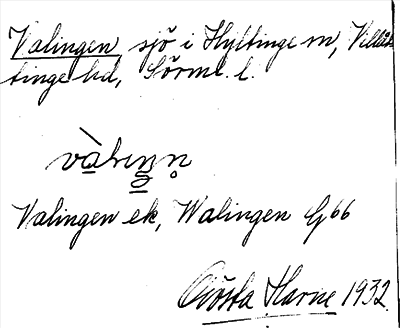 Valingen sjö i Hyltinge sn, Villåt-
tinge hd, Sörml. l.
Valingen ek, Walingen G66
Gösta Harne 1932.